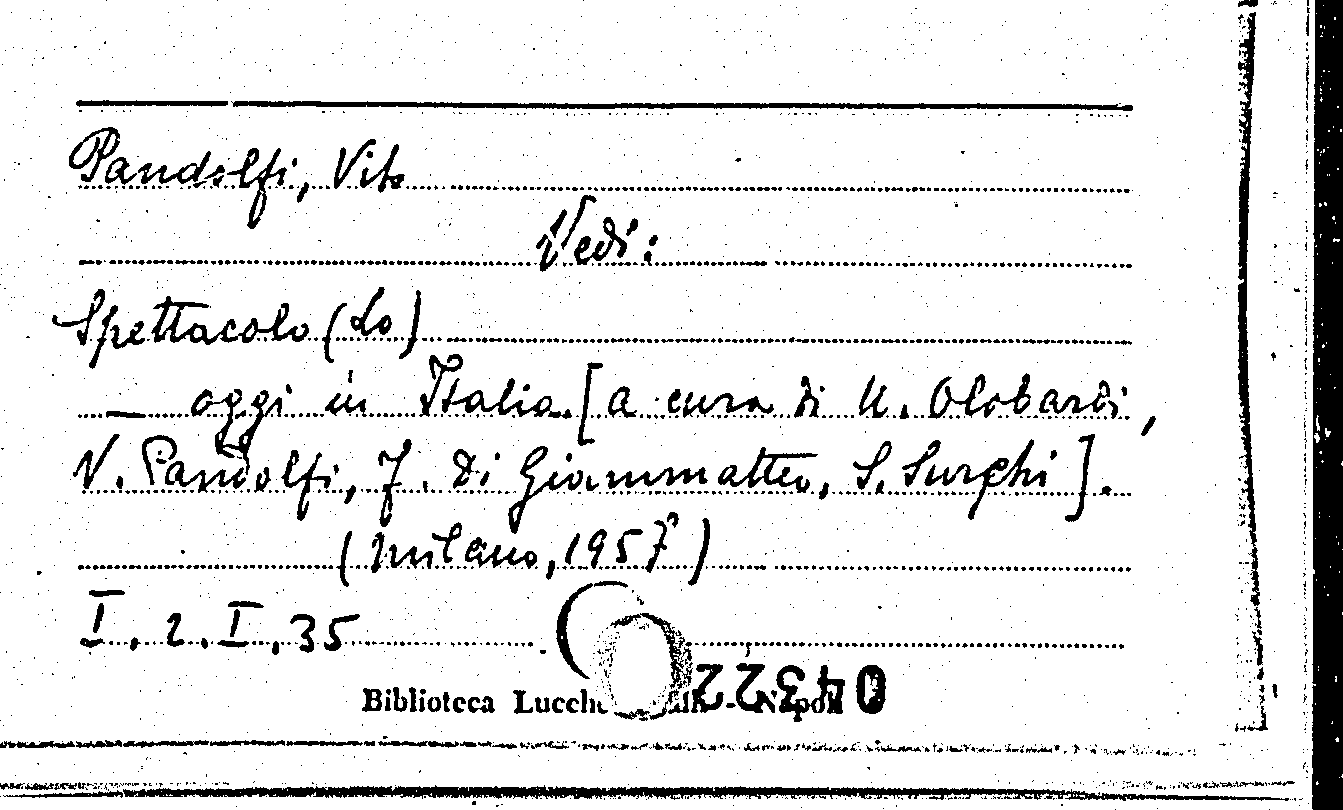 Pandolfi, Vito
Vedi:
Spettacolo (Lo)
— oggi in Italia. [a cura di U. Olobardi,
V. Pandolfi, F. Di Giammatteo, S. Surchi].
(Milano, 1957)
I. 2. I. 35
Biblioteca - Napoli